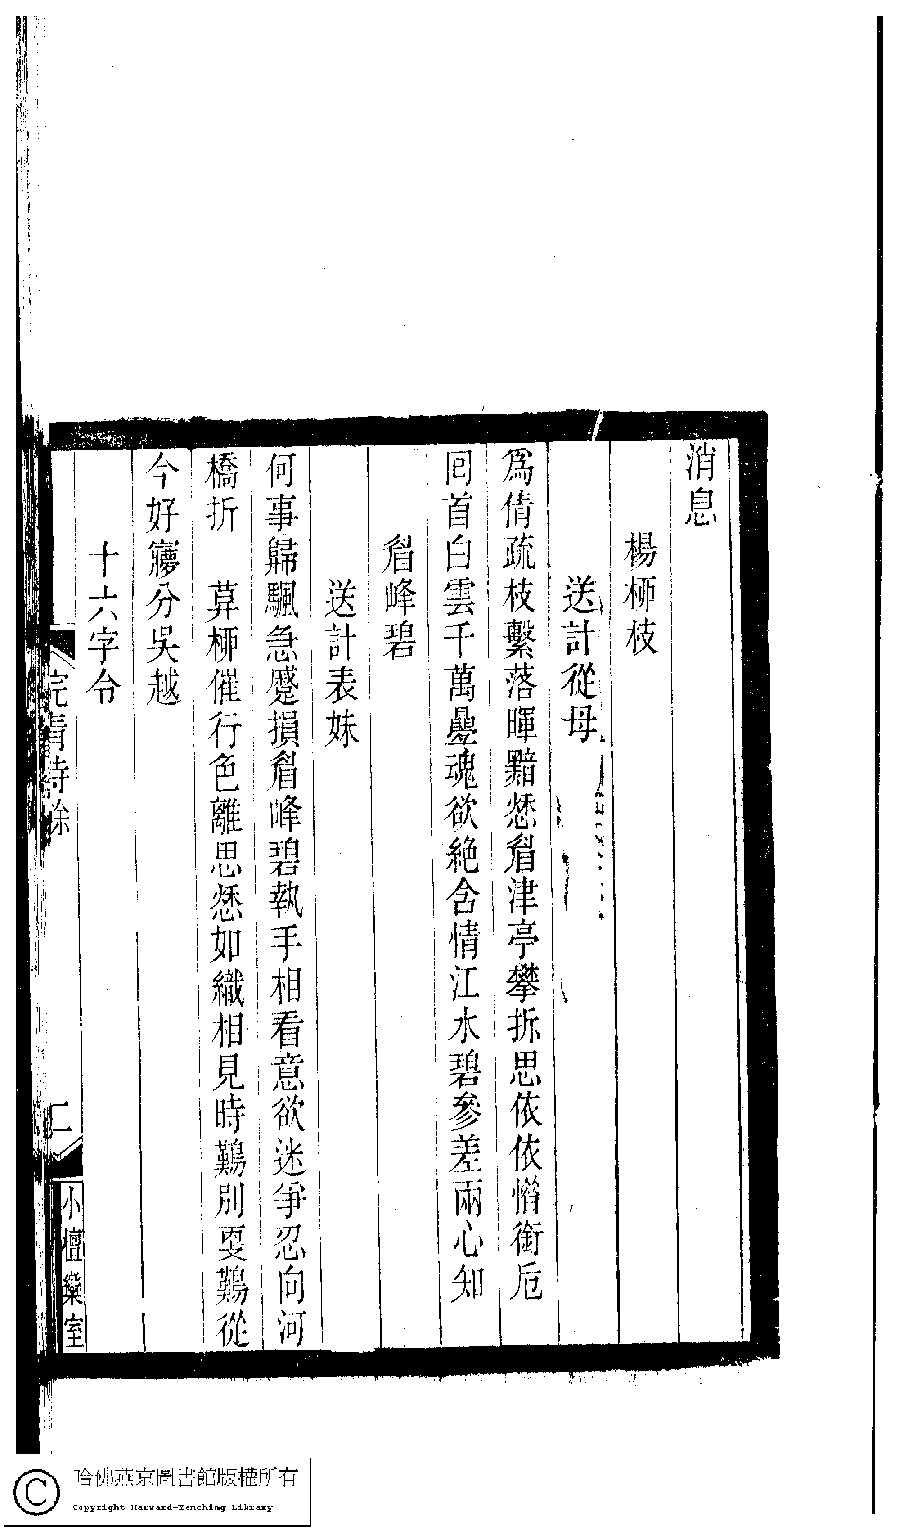 消息
楊柳枝
送計從母
爲倩疏枝繫落暉黯愁眉津亭攀折思依依懵銜卮
回首白雲千萬疊魂欲絶含情江水碧參差兩心知
眉峰碧
送計表妹
何事歸颿急蹙損眉峰碧執手相看意欲迷爭忍向河
橋折　草柳催行色離思愁如織相見時鷄別更鷄從
今好㝱分吳越
十六字令
青詩餘
二
小檀欒室
哈佛燕京圖書館版權所有
Copyright Harvard-Yenching Library